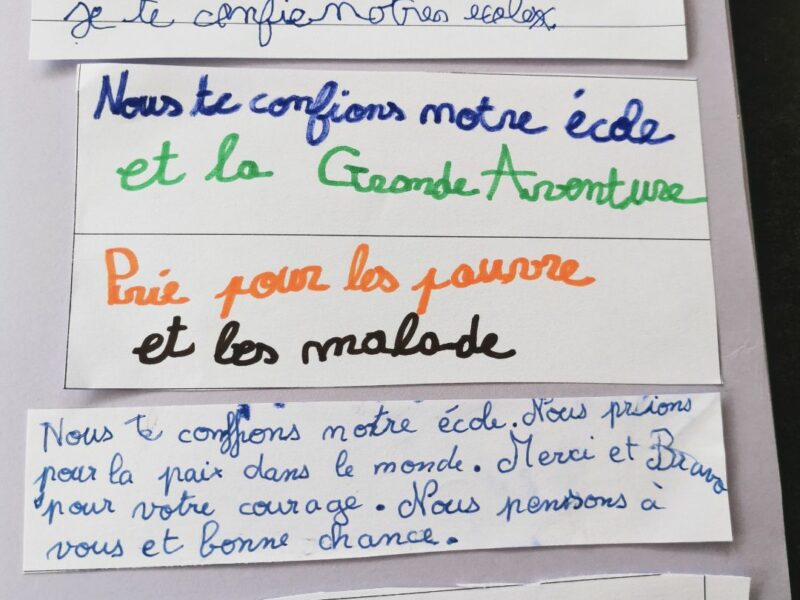 je te confie notres ecoles.
Nous te confions notre école
et la Grande Aventure
Prie pour les pauvre
et les malade
Nous te confions notre école. Nous prions
pour la paix dans le monde. Merci et Bravo
pour votre courage. Nous pensons à
vous et bonne chance.